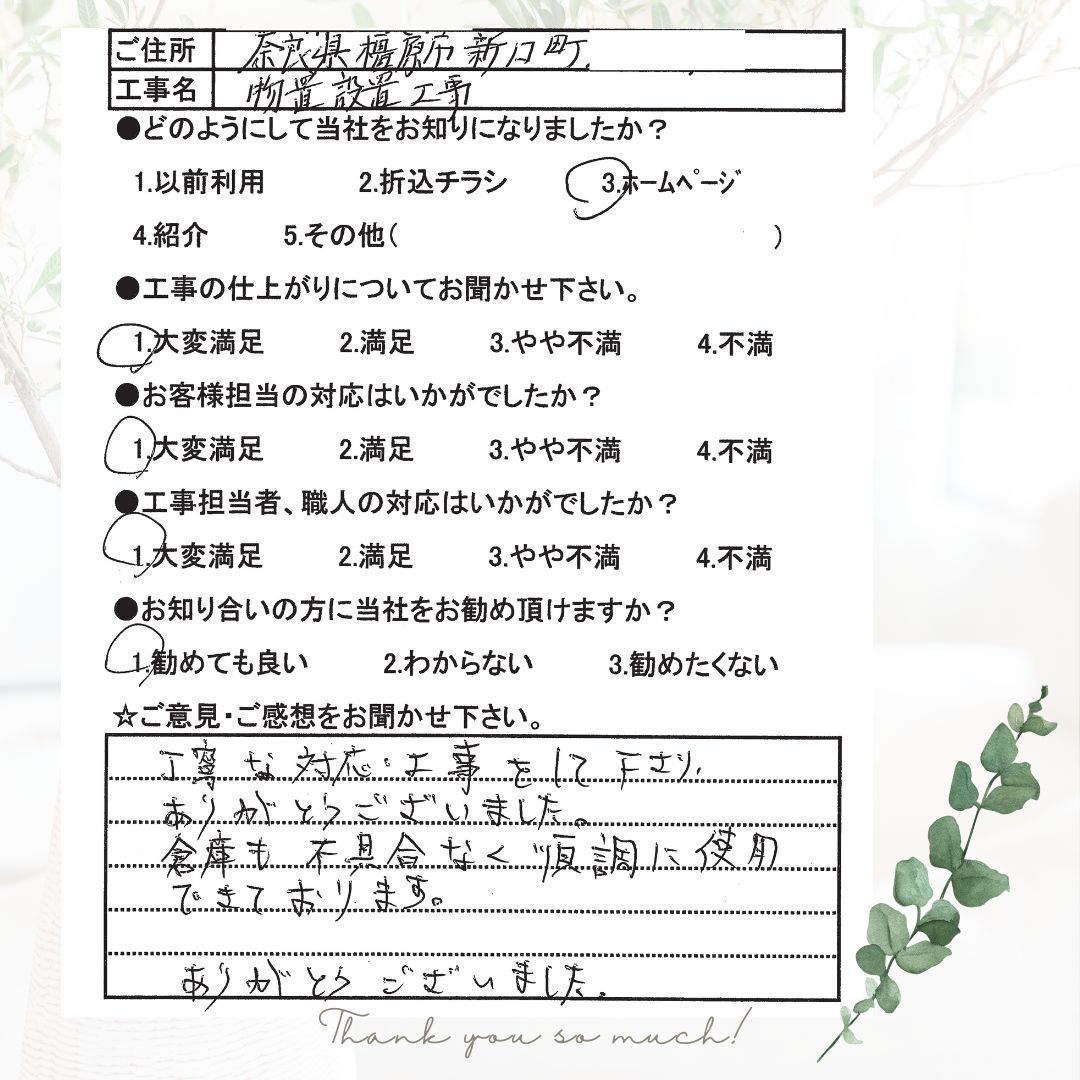 ご住所 奈良県橿原市新口町
工事名 物置設置工事
●どのようにして当社をお知りになりましたか？
1.以前利用 2.折込チラシ 3.ホームページ
4.紹介 5.その他( )
●工事の仕上がりについてお聞かせ下さい。
1.大変満足 2.満足 3.やや不満 4.不満
●お客様担当の対応はいかがでしたか？
1.大変満足 2.満足 3.やや不満 4.不満
●工事担当者、職人の対応はいかがでしたか？
1.大変満足 2.満足 3.やや不満 4.不満
●お知り合いの方に当社をお勧め頂けますか？
1.勧めても良い 2.わからない 3.勧めたくない
☆ご意見・ご感想をお聞かせ下さい。
丁寧な対応・工事をして下さり、
ありがとうございました。
倉庫も不具合なく順調に使用
できております。
ありがとうございました。
Thank you so much!